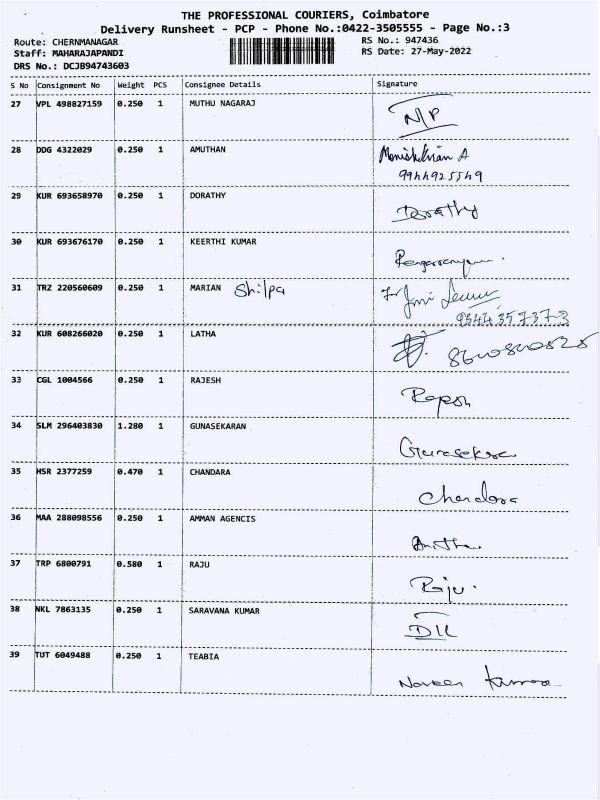 THE PROFESSIONAL COURIERS, Coimbatore
Delivery Runsheet - PCP - Phone No.:0422-3505555 - Page No.:3
Route: CHERNMANAGAR RS No.: 947436
Staff: MAHARAJAPANDI RS Date: 27-May-2022
DRS No.: DCJB94743603
S No Consignment No Weight PCS Consignee Details Signature
27 VPL 498827159 0.250 1 MUTHU NAGARAJ N/P
28 DDG 4322029 0.250 1 AMUTHAN
9944925549
29 KUR 693658970 0.250 1 DORATHY Dorathy
30 KUR 693676170 0.250 1 KEERTHI KUMAR
31 TRZ 220560609 0.250 1 MARIAN Shilpa
9344357373
32 KUR 608266020 0.250 1 LATHA
33 CGL 1004566 0.250 1 RAJESH
34 SLM 296403830 1.280 1 GUNASEKARAN
35 HSR 2377259 0.470 1 CHANDARA Chandara
36 MAA 288098556 0.250 1 AMMAN AGENCIS
37 TRP 6800791 0.580 1 RAJU Raju.
38 NKL 7863135 0.250 1 SARAVANA KUMAR
39 TUT 6049488 0.250 1 TEABIA Naveen Kumar